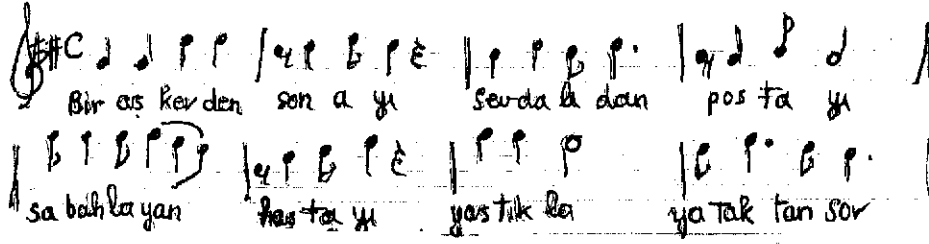 Bir as ker den son a yı sevda lı dan pos ta yı
sa bah la yan has ta yı yas tık la ya tak tan sor